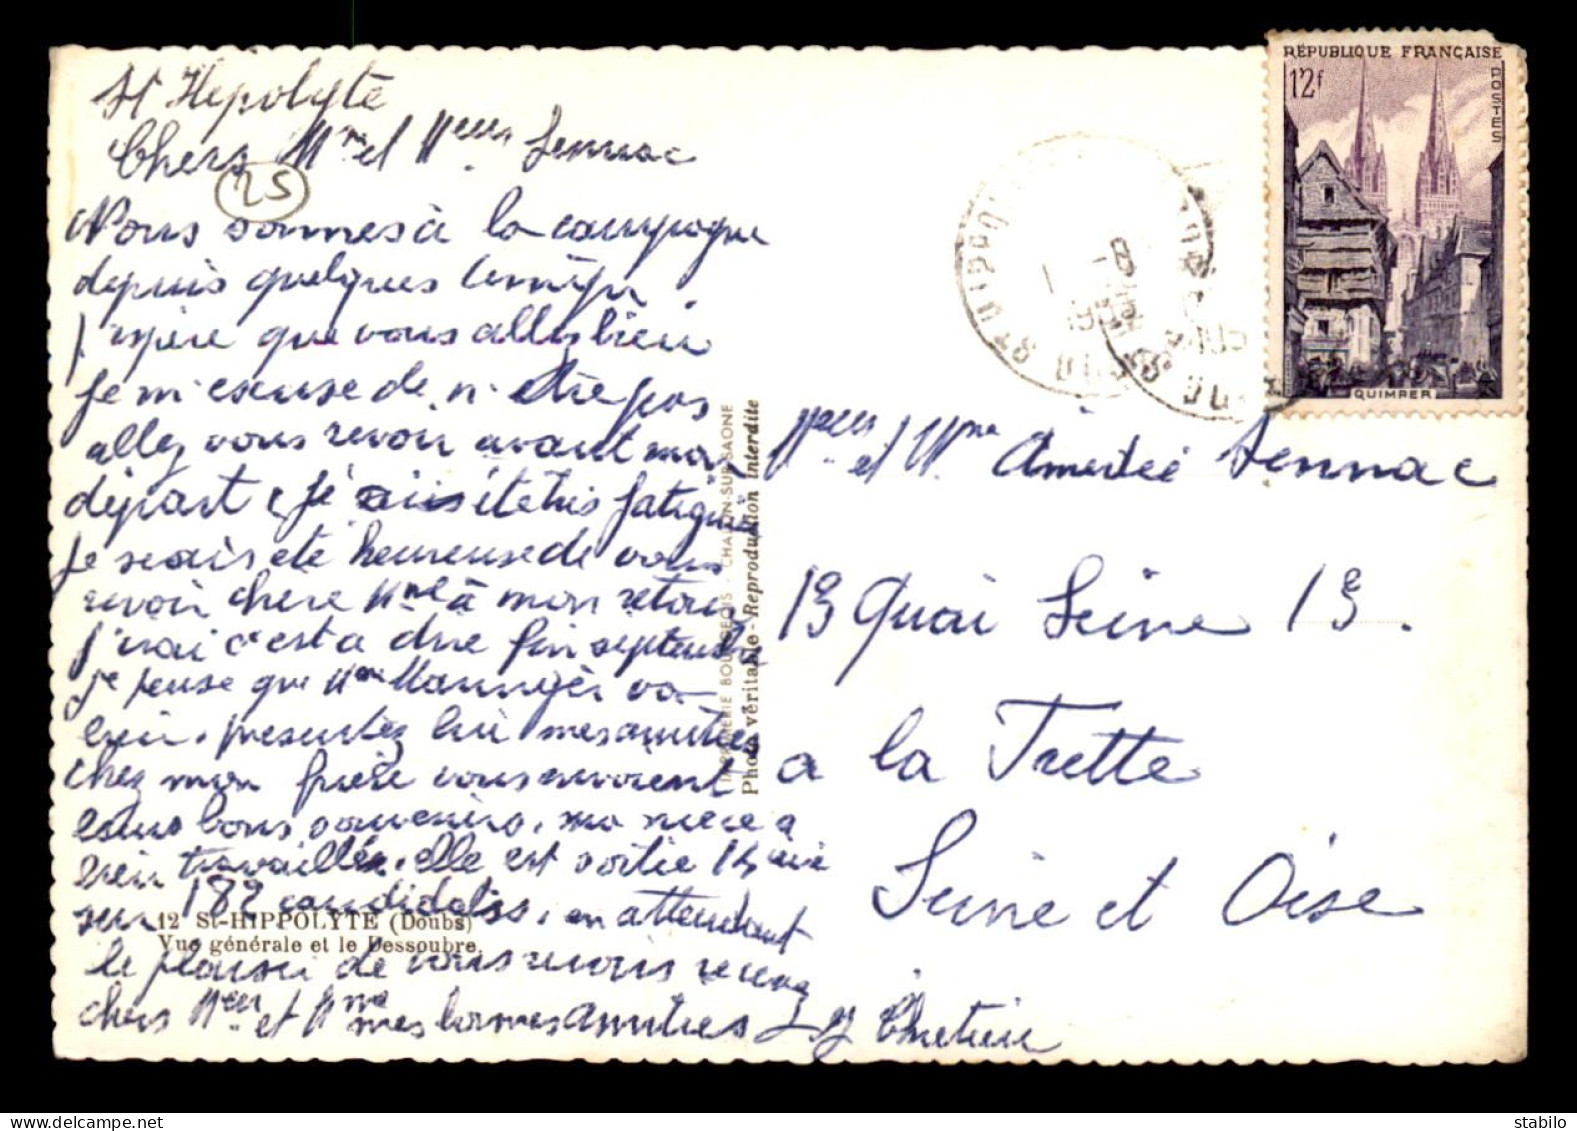 St Hepolyte
Chers Mme et Mseur Sennac
25
Nous sommes à la campagne
depuis quelques temps.
J'espère que vous allez bien
Je m'excuse de n'être pas
allez vous revoir avant mon
départ, j'étais très fatiguée
Je serais eté heureuse de vous
revoir chère Mme à mon retour
j'irai c'est a dire fin septembre
je pense que Mme va
bien. presentez lui mes amitiés
chez mon frère vous envoient
leurs bons souvenirs, ma niece a
bien travaillée. elle est sortie 14 ème
sur 182 candidates, en attendant
le plaisir de vous revoir recevez
chers Mseur et Mme mes bonnes amitiés J. Chretien
12 St-HIPPOLYTE (Doubs)
Vue générale et le Dessoubre.
IMPRIMERIE BOURGEOIS - CHALON-SUR-SAONE
Photo véritable - Reproduction interdite
ST HIPPOLYTE
1 -8
1955
DOUBS
RÉPUBLIQUE FRANÇAISE
12f
POSTES
QUIMPER
Mseur et Mme Amédée Sennac
13 Quai Seine 13.
a la Frette
Seine et Oise
www.delcampe.net
tontonvinz